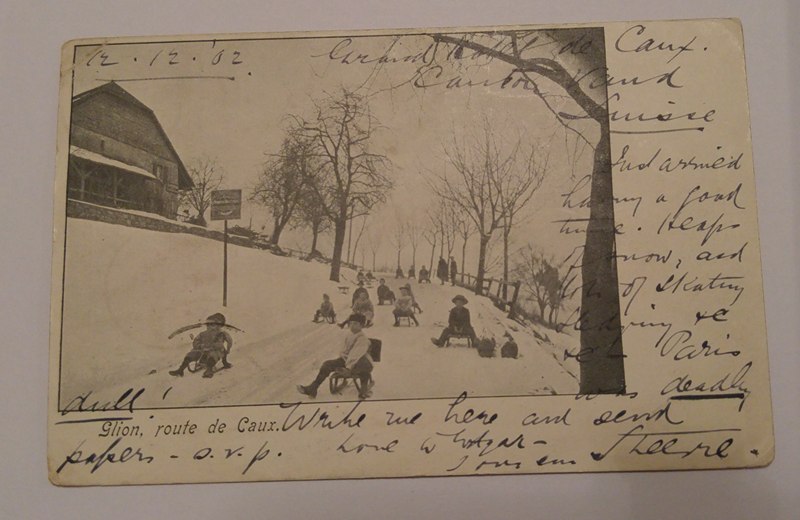 12.12.'02
Grand Hotel de Caux.
Canton Vaud
Suisse
Just arrived
having a good
time. Heaps
of snow, and
lots of skating
sledging &c
&c - Paris
was deadly
dull!
Glion, route de Caux.
Write me here and send
papers - s.v.p. Love to Edgar -
Yours ever